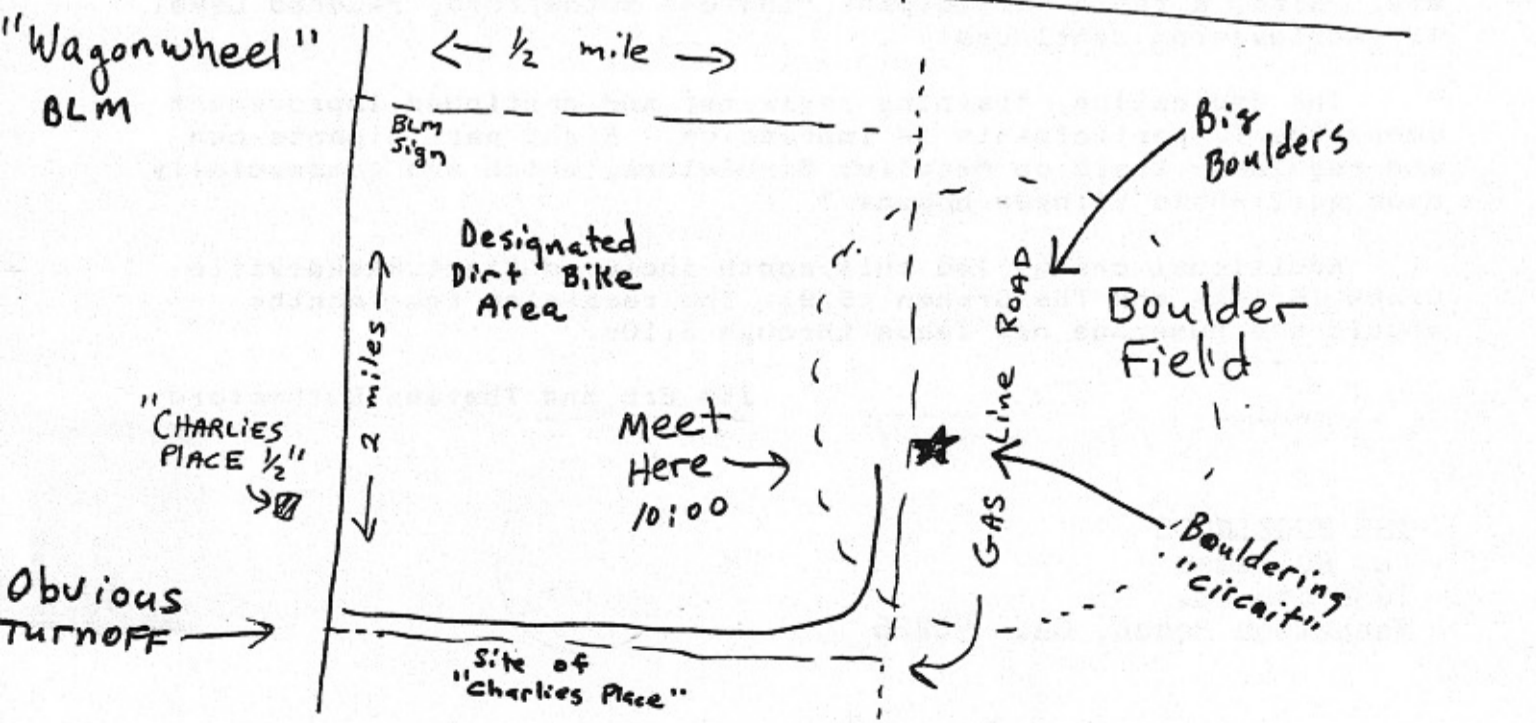 "Wagonwheel"
BLM
← 1/2 mile →
BLM
Sign
Big
Boulders
Designated
Dirt Bike
Area
2 miles
GAS Line ROAD
Boulder
Field
"CHARLIES
PLACE 1/2"
Meet
Here
10:00
Bouldering
"circuit"
Obvious
TURNOFF
Site of
"Charlies Place"